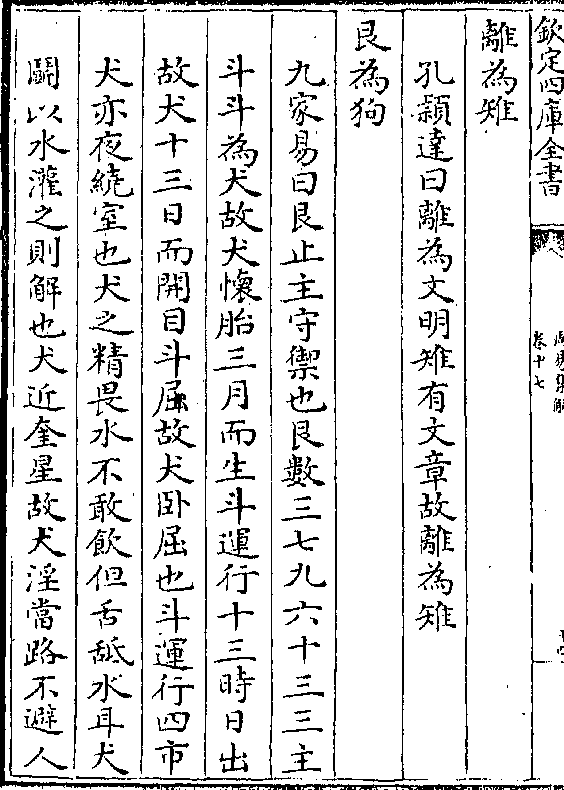 欽定四庫全書
卷十七
離為雉
孔穎達曰離為文明雉有文章故離為雉
艮為狗
九家易曰艮止主守禦也艮數三七九六十三三主
斗斗為犬故犬懷胎三月而生斗運行十三時日出
故犬十三日而開目斗屈故犬卧屈也斗運行四市
犬亦夜繞室也犬之精畏水不敢飲但舌舐水耳犬
鬭以水灌之則解也犬近奎星故犬淫當路不避人